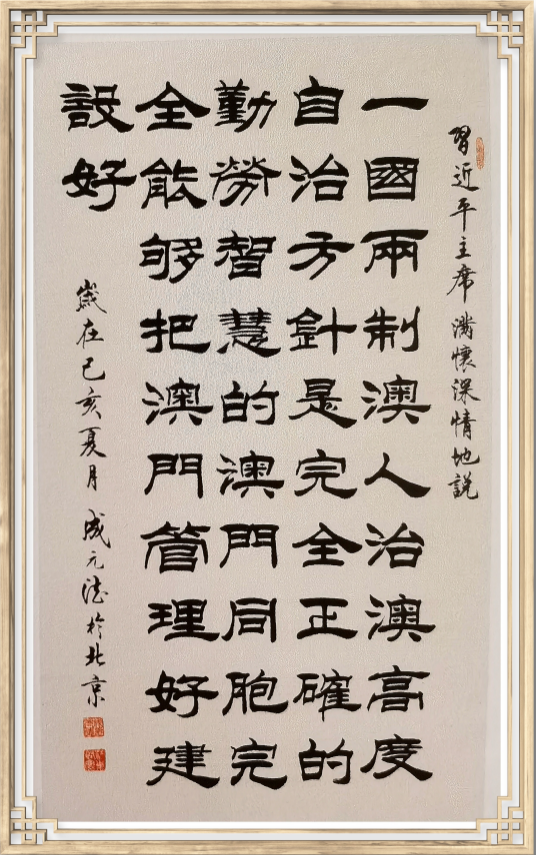 習近平主席滿懷深情地説
一國兩制澳人治澳高度
自治方針是完全正確的
勤勞智慧的澳門同胞完
全能够把澳門管理好建
設好
歲在己亥夏月成元法於北京